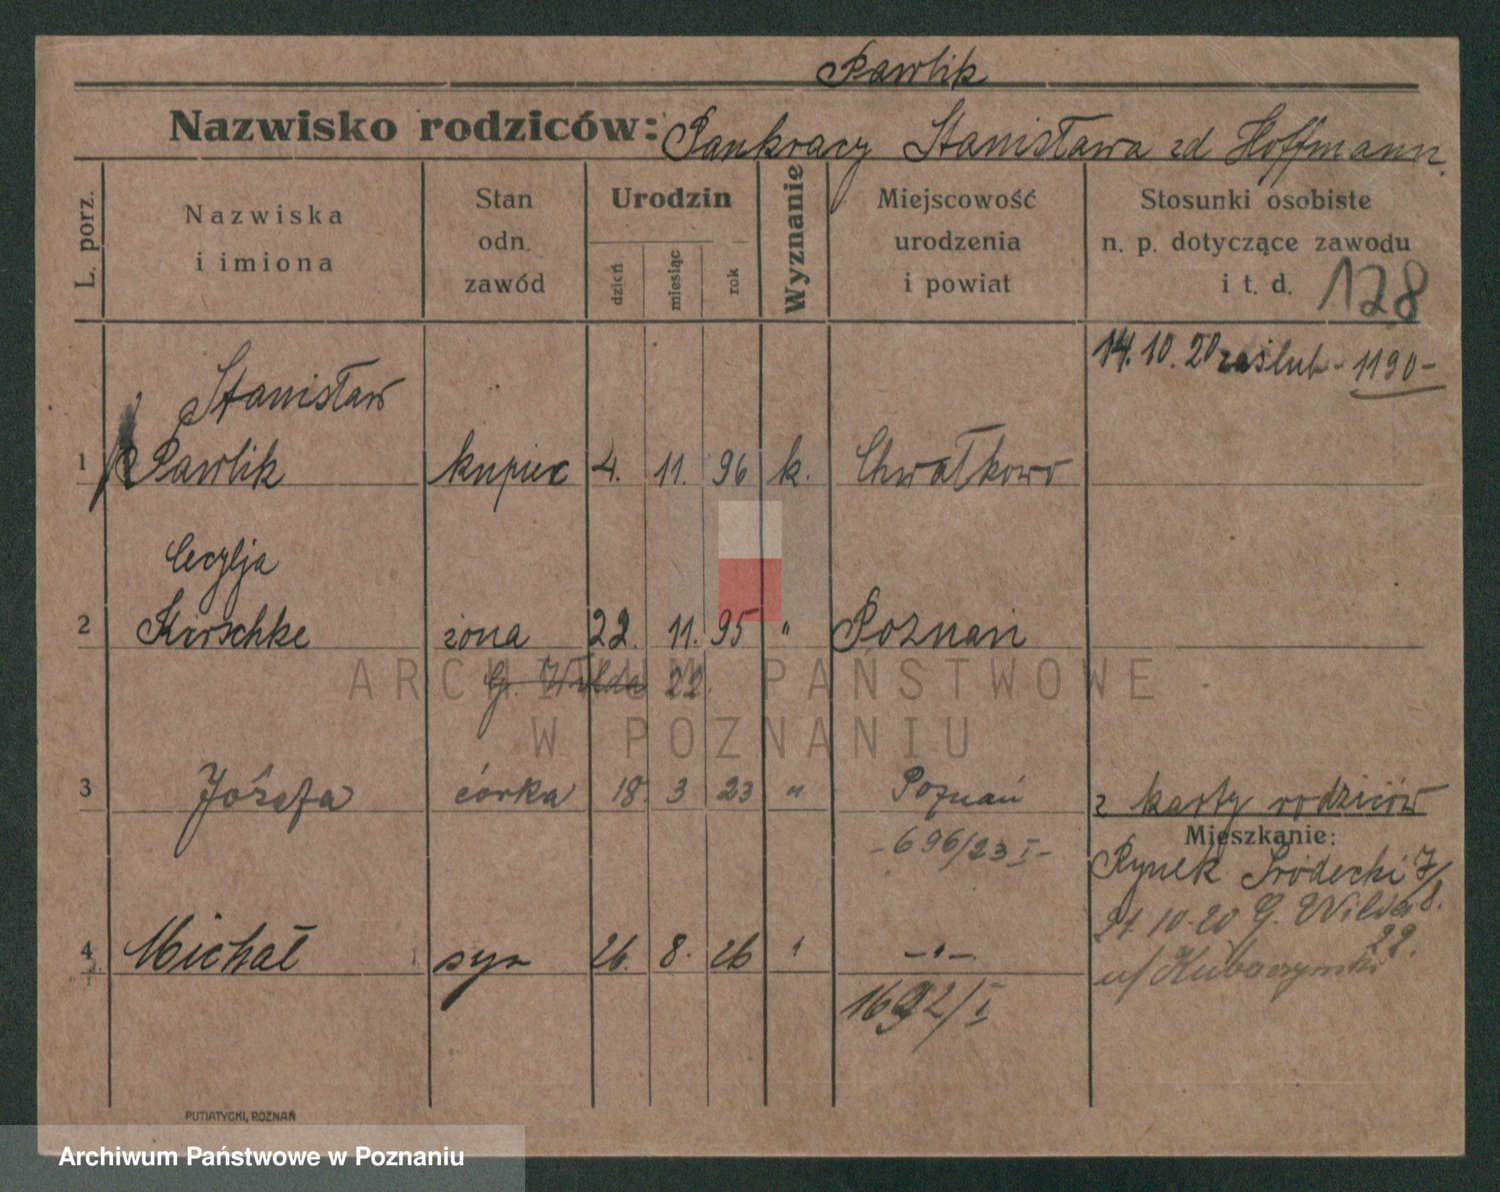 Pawlik
Nazwisko rodziców: Pankracy Stanisława zd Hoffmann.
L. porz.
Nazwiska
i imiona
Stan
odn.
zawód
Urodzin
dzień
miesiąc
rok
Wyznanie
Miejscowość
urodzenia
i powiat
Stosunki osobiste
n. p. dotyczące zawodu
i t. d.
128
14. 10. 20 zaślub - 1190 -
Stanisław
1 Pawlik kupiec 4. 11. 96 k. Chwałkowo
Cecylja
2 Kirschke żona 22. 11. 95 " Poznań
G. Wilda 22.
3 Józefa córka 18. 3 23 " Poznań z karty rodziców
- 696/23 I -
Mieszkanie:
Rynek Śródecki 7/8.
21. 10. 20 G. Wilda
22.
4 Michał syn 26. 8. 26 " - " -
1692/I
PUTIATYCKI, POZNAŃ
ARCHIWUM PAŃSTWOWE
W POZNANIU
Archiwum Państwowe w Poznaniu